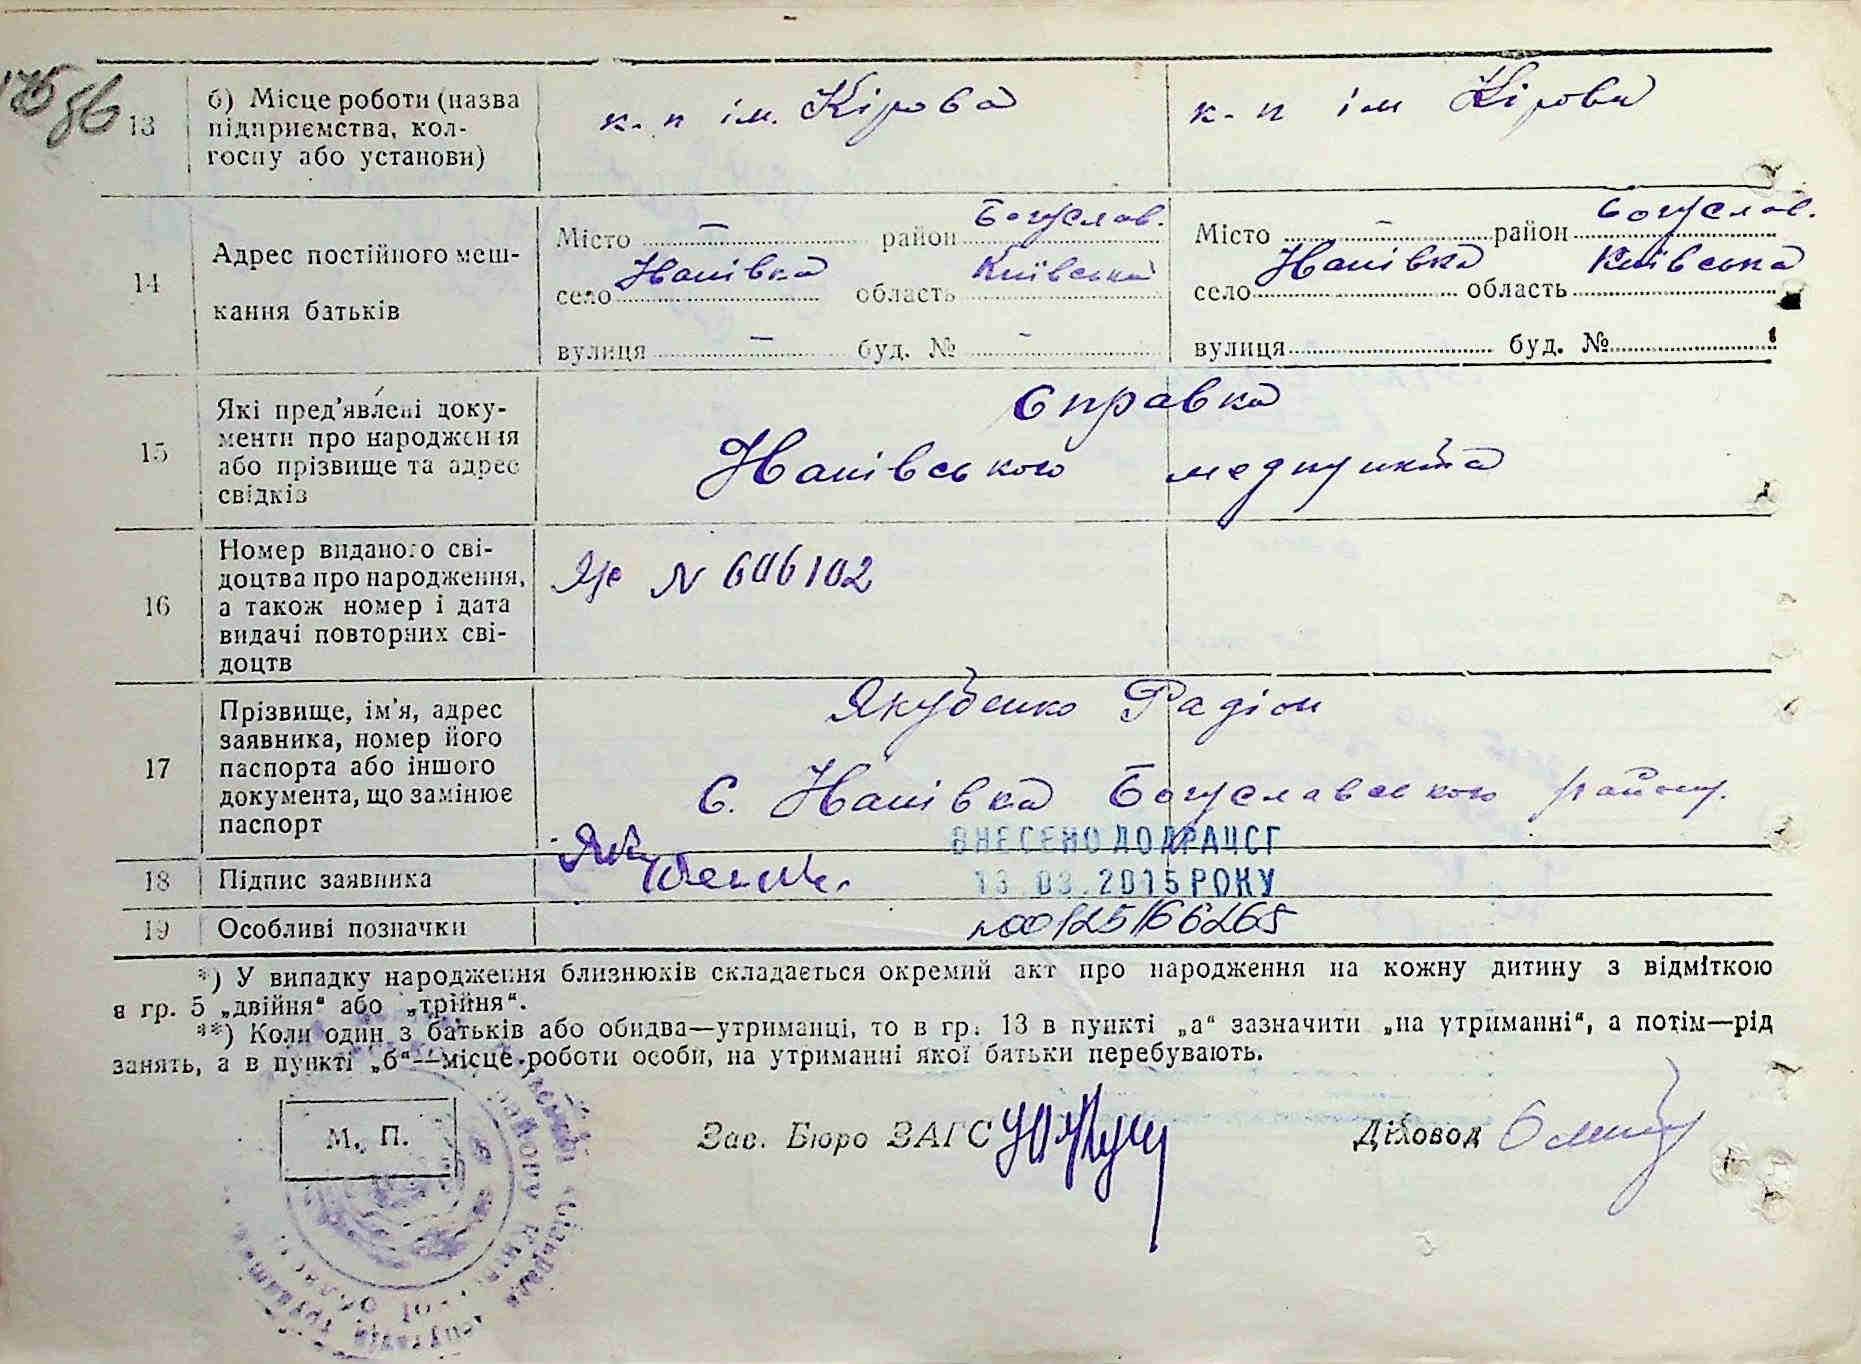 13
б) Місце роботи (назва
підприємства, кол-
госпу або установи)
к. п ім. Кірова
к. п ім Кірова
14
Адрес постійного меш-
кання батьків
Місто – район Богуслав.
село Нанівка область Київська
вулиця – буд. № –
Місто – район Богуслав.
село Нанівка область Київська
вулиця буд. №
15
Які пред'явлені доку-
менти про народження
або прізвище та адрес
свідків
Справка
Нанівського медпункта
16
Номер виданого сві-
доцтва про народження,
а також номер і дата
видачі повторних сві-
доцтв
N 606102
17
Прізвище, ім'я, адрес
заявника, номер його
паспорта або іншого
документа, що замінює
паспорт
Якубенко Радіон
С. Нанівка Богуславського району.
ВНЕСЕНО ДО ДРАЦСГ
18
Підпис заявника
13.03.2015 РОКУ
19
Особливі позначки
00125166265
*) У випадку народження близнюків складається окремий акт про народження на кожну дитину з відміткою
в гр. 5 „двійня“ або „трійня“.
**) Коли один з батьків або обидва—утриманці, то в гр. 13 в пункті „а“ зазначити „на утриманні“, а потім—рід
занять, а в пункті „б“—місце роботи особи, на утриманні якої батьки перебувають.
М. П.
Зав. Бюро ЗАГС
Діловод